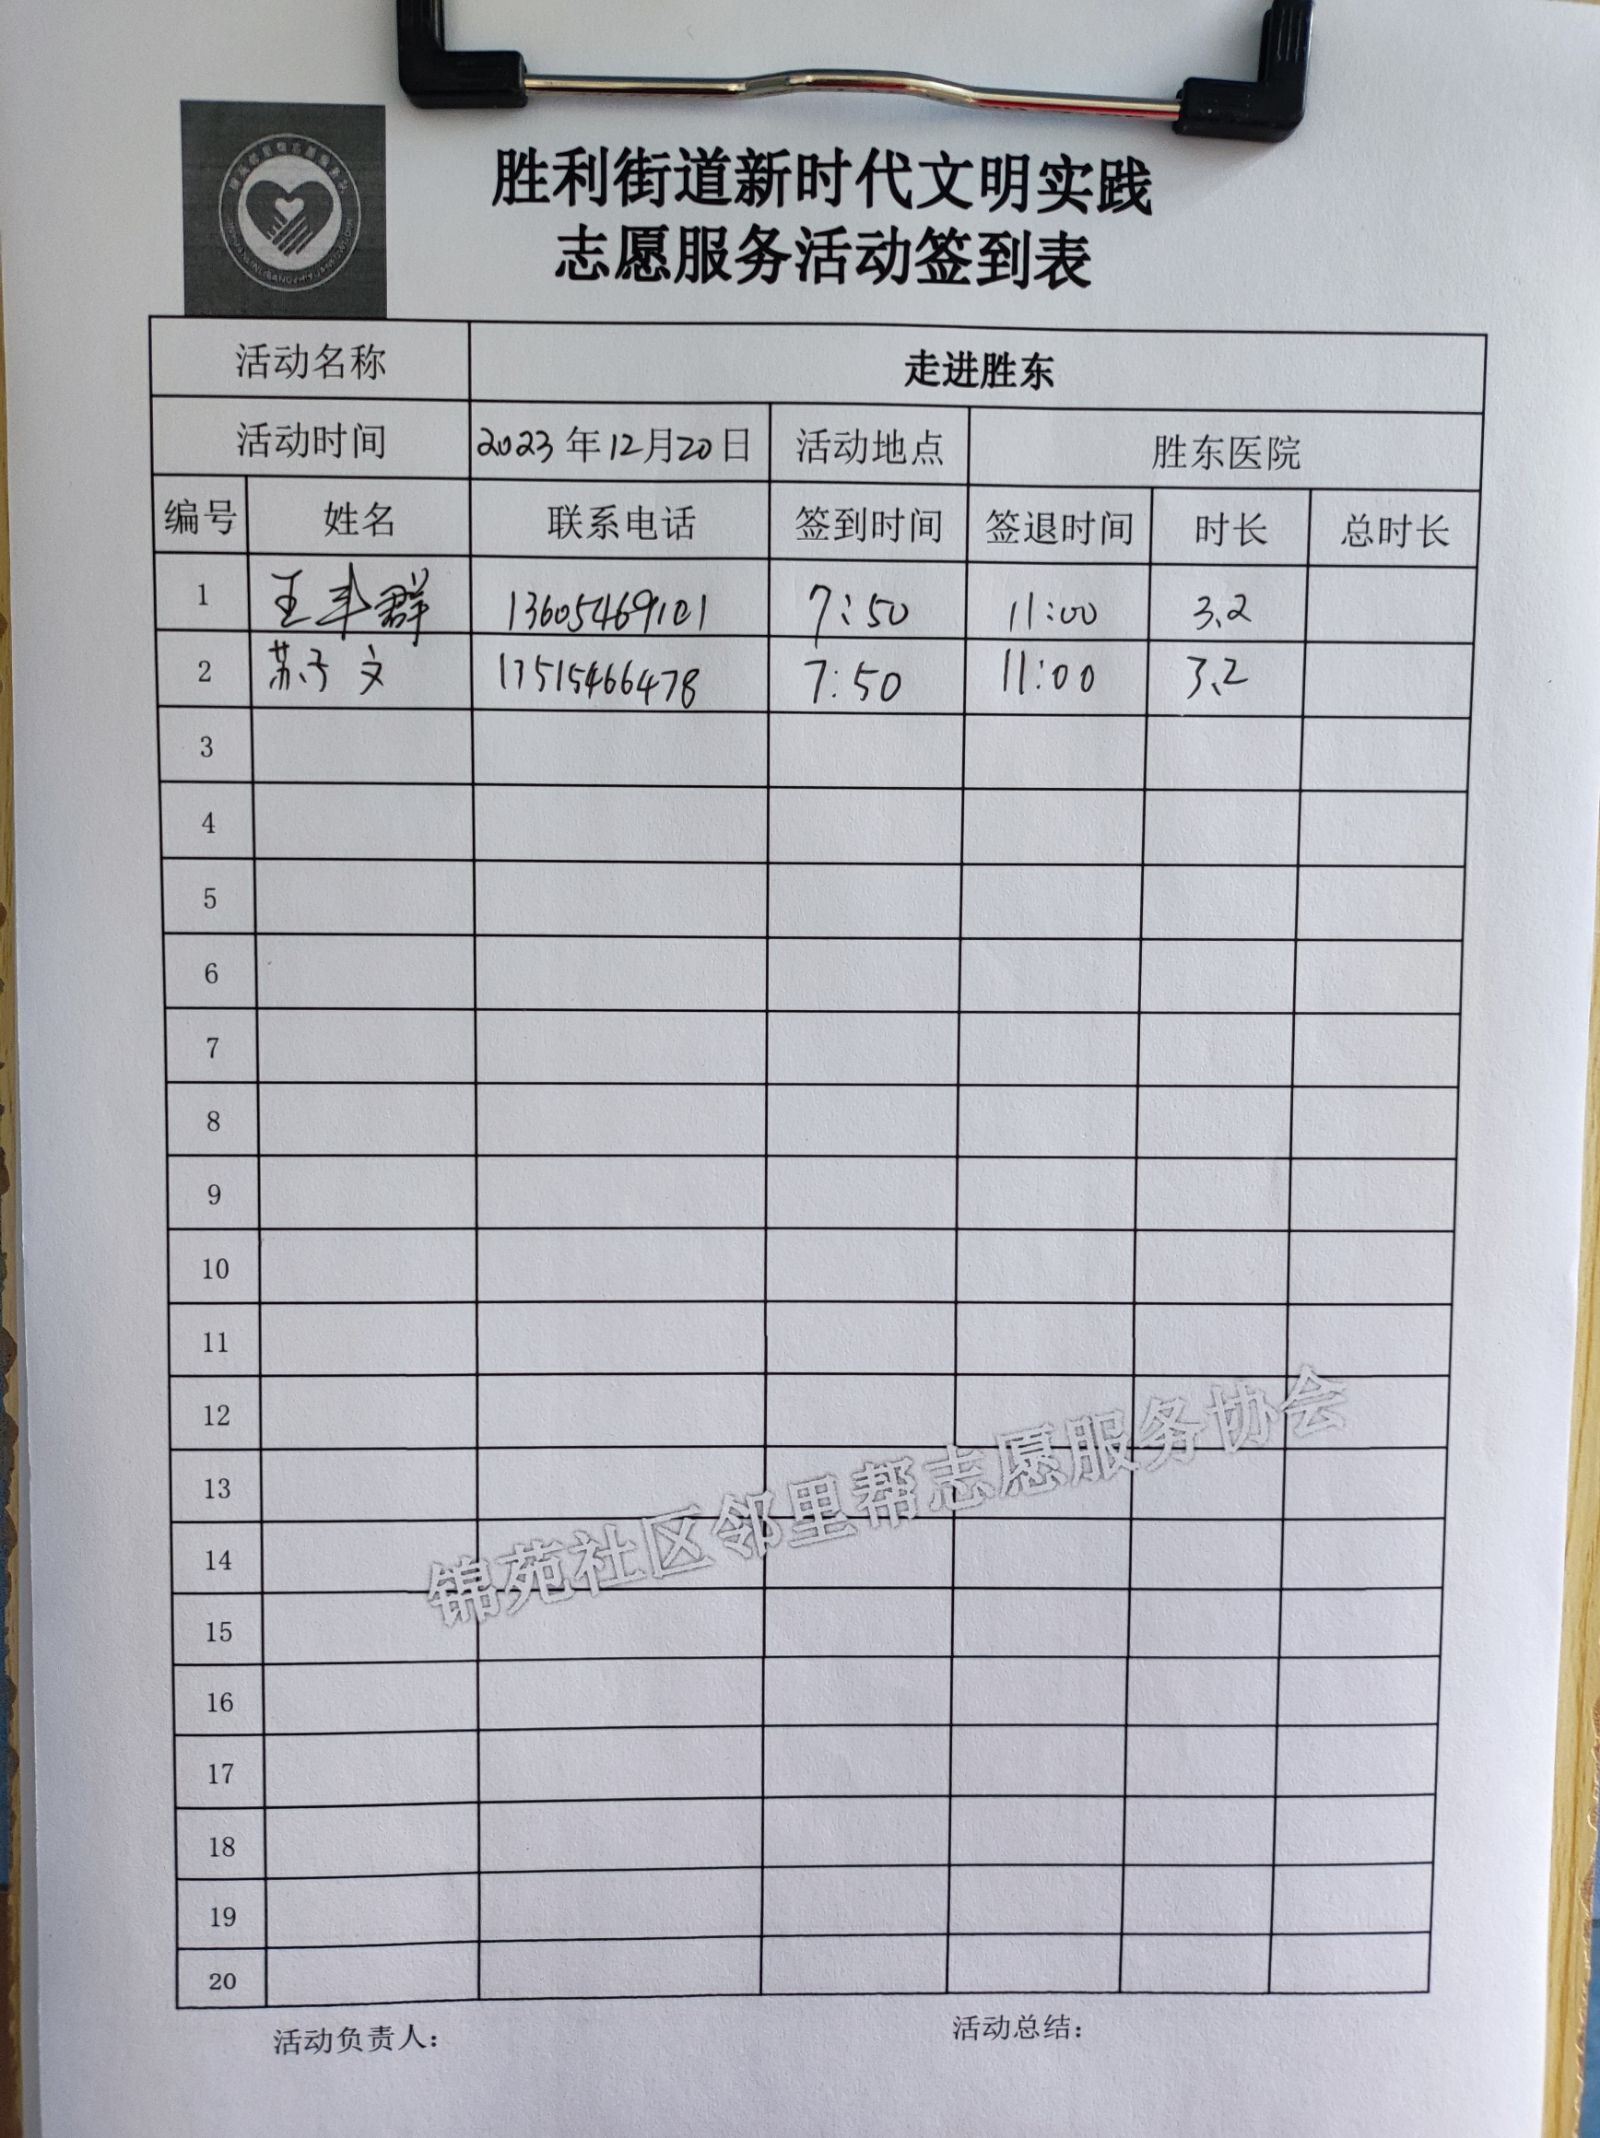 胜利街道新时代文明实践
志愿服务活动签到表
活动名称 走进胜东
活动时间 2023年12月20日 活动地点 胜东医院
编号 姓名 联系电话 签到时间 签退时间 时长 总时长
1 王 群 13605469101 7:50 11:00 3.2
2 苏 文 13515466478 7:50 11:00 3.2
3
4
5
6
7
8
9
10
11
12
13
14
15
16
17
18
19
20
锦苑社区邻里帮志愿服务协会
活动负责人: 活动总结: